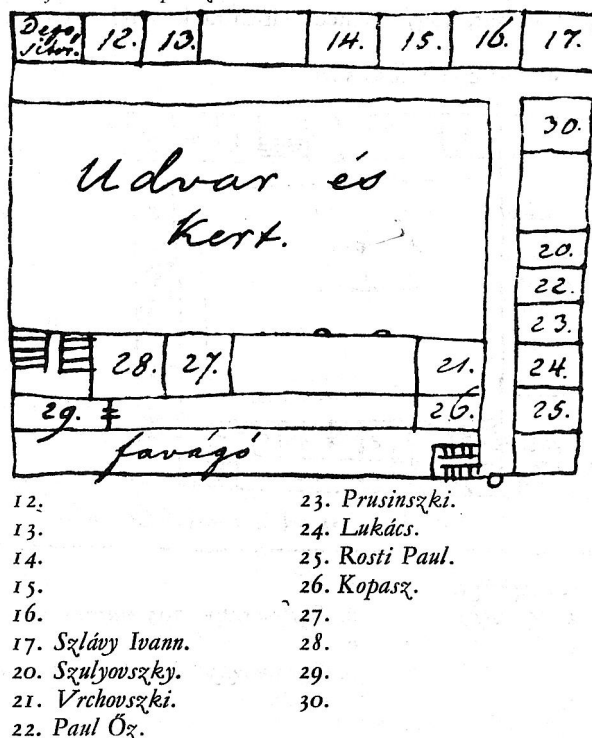 Depositor. 12. 13. 14. 15. 16. 17.
30.
Udvar és
Kert.
20.
22.
23.
28. 27. 21. 24.
29. 26. 25.
favágó
12.
13.
14.
15.
16.
17. Szlávy Ivann.
20. Szulyovszky.
21. Vrchovszki.
22. Paul Őz.
23. Prusinszki.
24. Lukács.
25. Rosti Paul.
26. Kopasz.
27.
28.
29.
30.